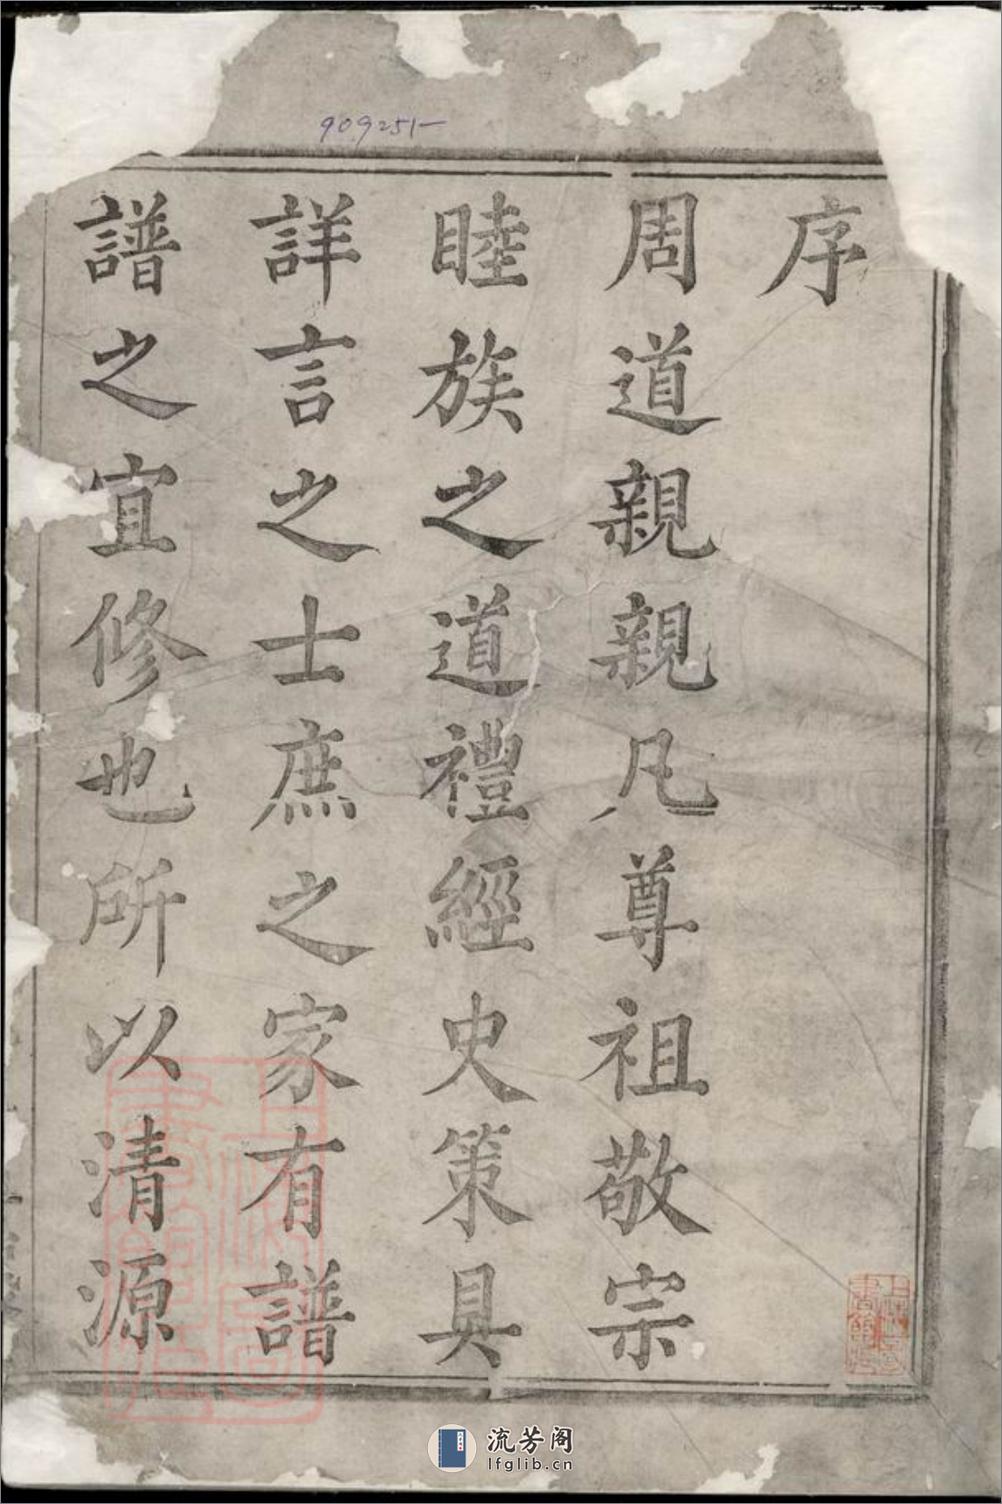 909251
序
周道親親凡尊祖敬宗
睦族之道禮經史策具
詳言之士庶之家有譜
譜之宜修也所以清源
流芳阁
lfglib.cn